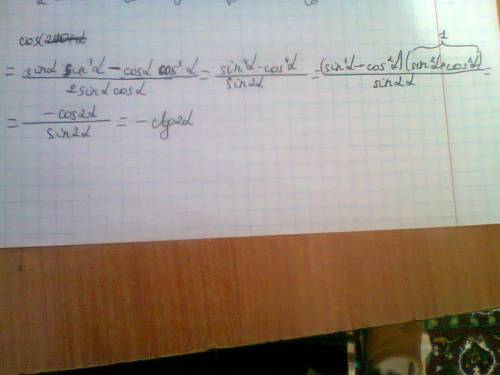 cos(
= (sinα sin³α - cosα cos³α) / (2sinα cosα) = (sin⁴α - cos⁴α) / (sin2α) = ((sin²α - cos²α)(sin²α + cos²α)) / (sin2α) =
1
= (-cos2α) / (sin2α) = - ctg2α